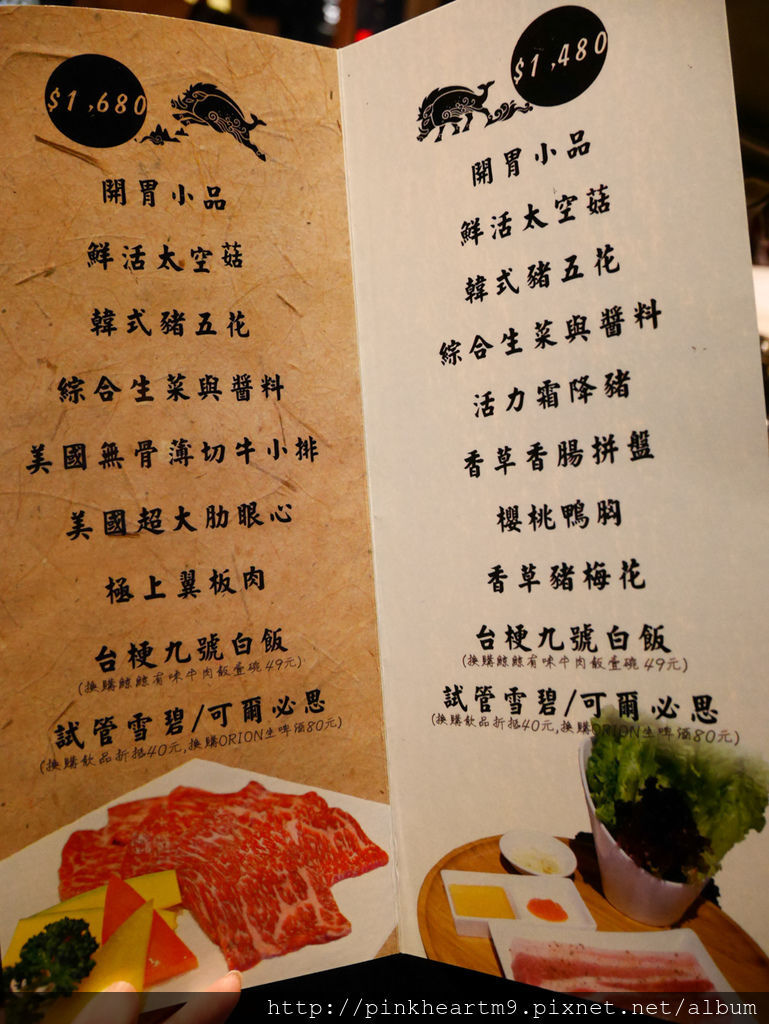 $1,680
開胃小品
鮮活太空菇
韓式豬五花
綜合生菜與醬料
美國無骨薄切牛小排
美國超大肋眼心
極上翼板肉
台梗九號白飯
(換購鯨鯨有味牛肉飯壹碗49元)
試管雪碧/可爾必思
(換購飲品折抵40元,換購ORION生啤酒80元)
$1,480
開胃小品
鮮活太空菇
韓式豬五花
綜合生菜與醬料
活力霜降豬
香草香腸拼盤
櫻桃鴨胸
香草豬梅花
台梗九號白飯
(換購鯨鯨有味牛肉飯壹碗49元)
試管雪碧/可爾必思
(換購飲品折抵40元,換購ORION生啤酒80元)
http://pinkheartm9.pixnet.net/album